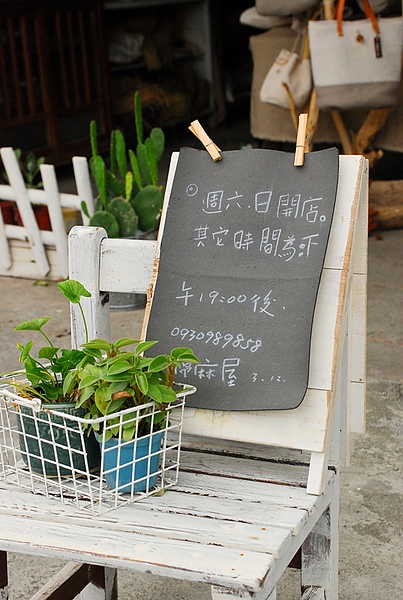 ◎ 週六.日開店。
其它時間為下
午19:00後.
0930989858
麻屋 3.12.